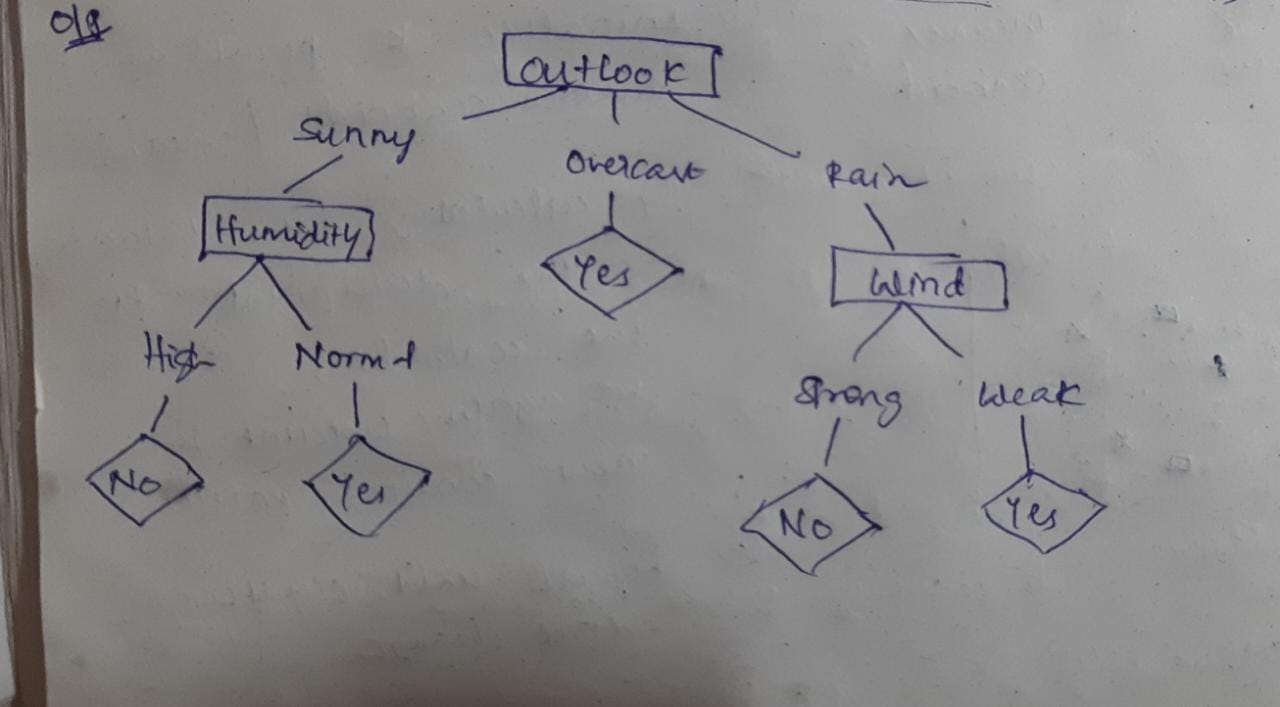 O/p
Outlook
Sunny
Overcast
Rain
Humidity
Yes
Wind
High
Normal
Strong
Weak
No
Yes
No
Yes